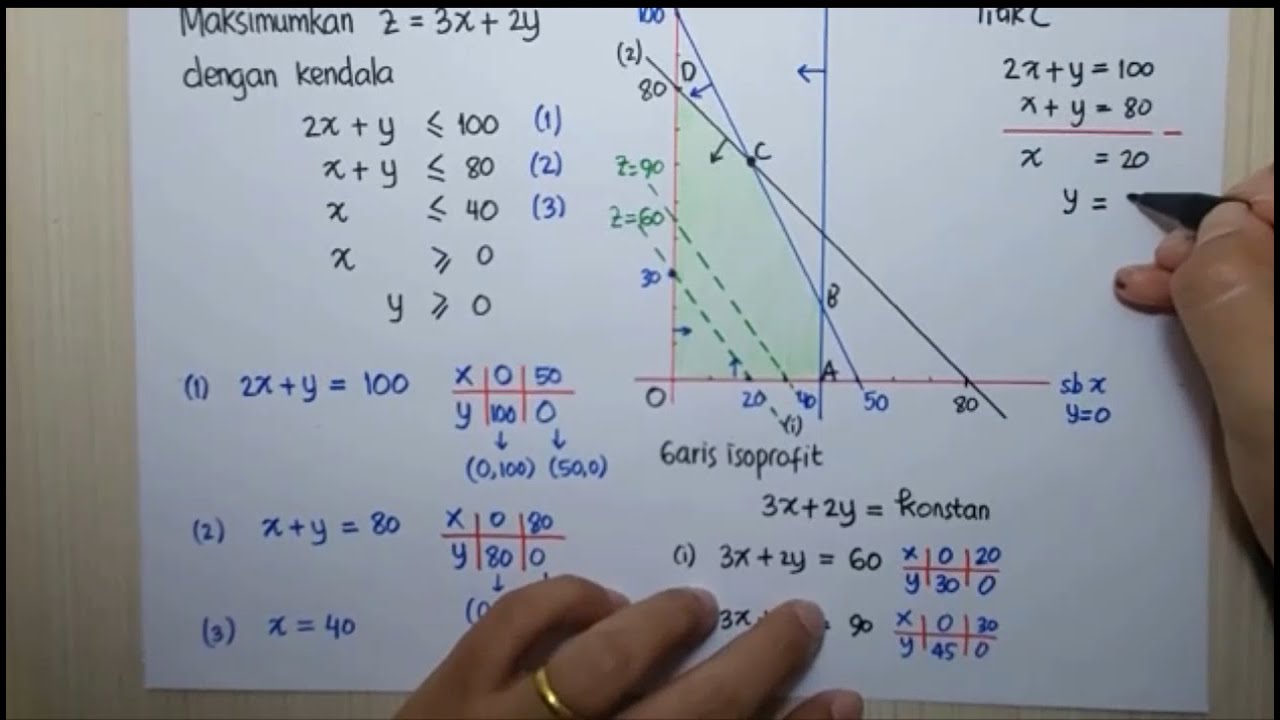 Maksimumkan z = 3x + 2y
dengan kendala
2x + y ≤ 100 (1)
x + y ≤ 80 (2)
x ≤ 40 (3)
x ≥ 0
y ≥ 0
(1) 2x + y = 100
x 0 50
y 100 0
↓ ↓
(0,100) (50,0)
(2) x + y = 80
x 0 80
y 80 0
↓
(0
(3) x = 40
100
(2)
D
80
C
z=90
z=60
30
B
A
O
20
40
50
80
(i)
sb x
y=0
Garis isoprofit
3x + 2y = konstan
(i) 3x + 2y = 60
x 0 20
y 30 0
3x
= 90
x 0 30
y 45 0
Titik C
2x + y = 100
x + y = 80
−
x = 20
y =